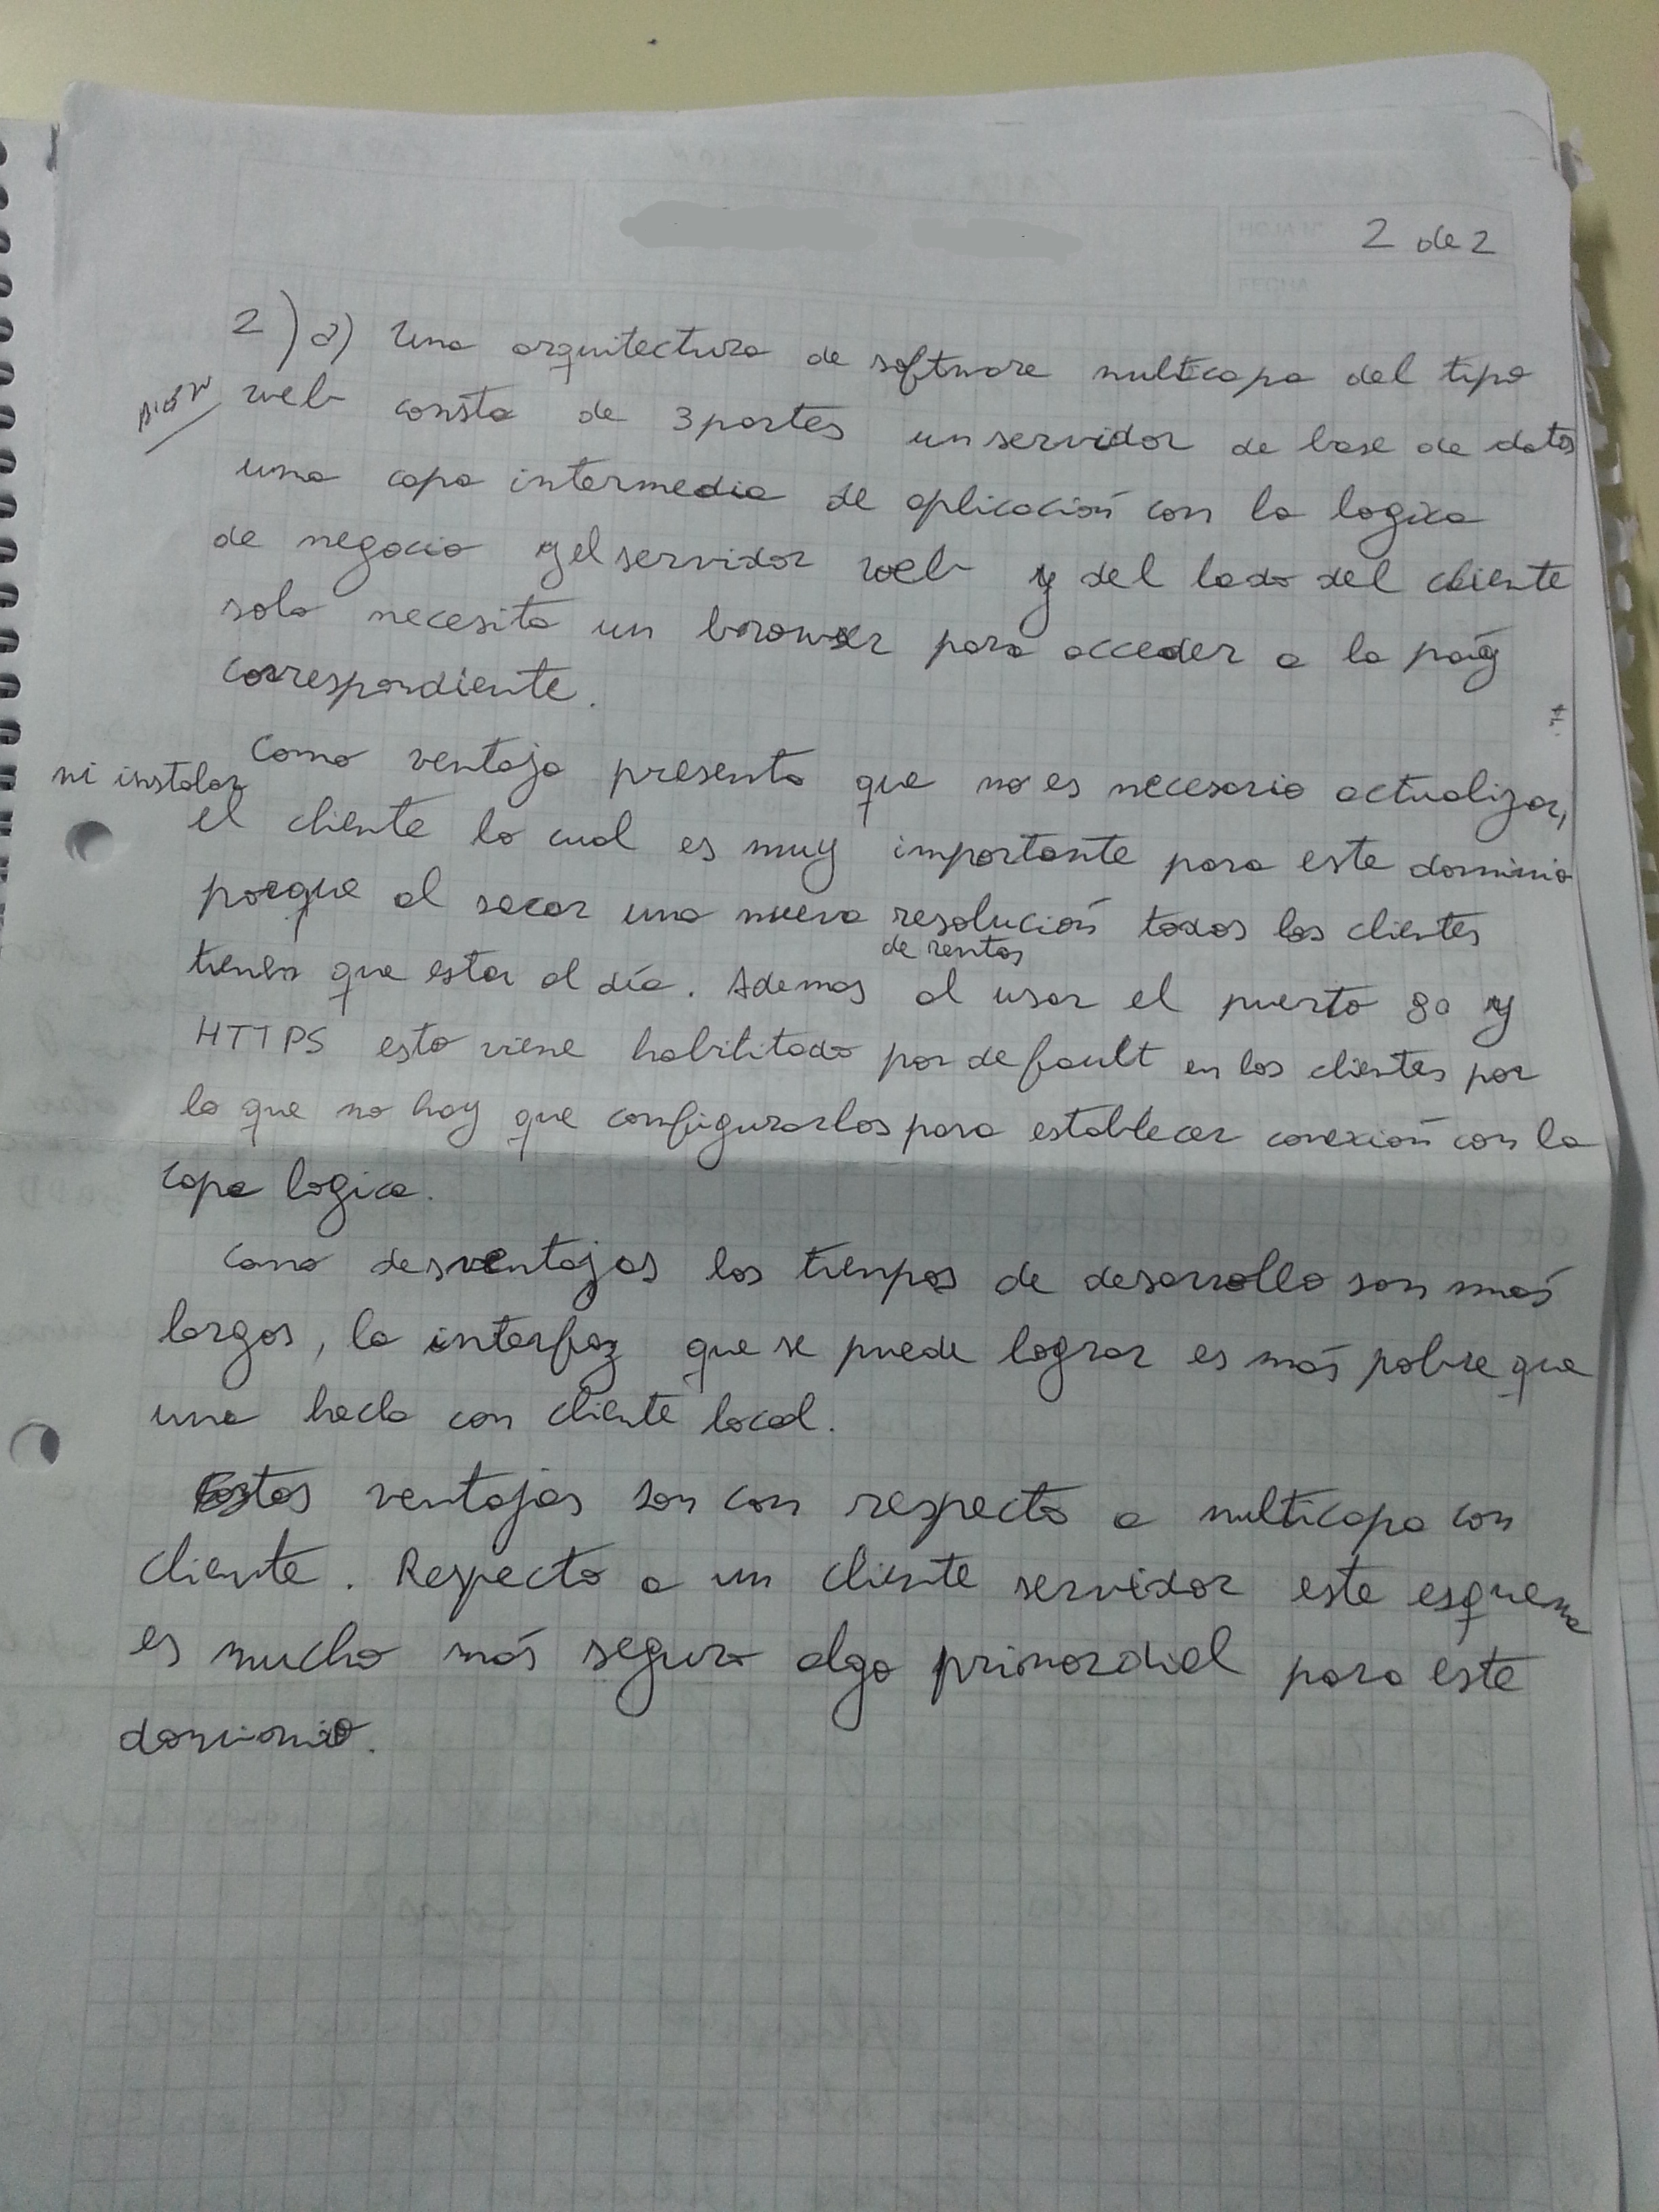 HOJA Nº 2 de 2
FECHA
2) a) Una arquitectura de software multicapa del tipo
BIEN web consta de 3 partes un servidor de base de datos
una capa intermedia de aplicación con la logica
de negocio y el servidor web y del lado del cliente
solo necesita un browser para acceder a la pág
correspondiente.
Como ventaja presenta que no es necesario actualizar,
ni instalar el cliente lo cual es muy importante para este dominio
porque al sacar una nueva resolución todos los clientes
de rentas
tienen que estar al día. Ademas al usar el puerto 80 y
HTTPS esto viene habilitado por default en los clientes por
lo que no hay que configurarlos para establecer conexión con la
capa logica.
Como desventajas los tiempos de desarrollo son más
largos, la interfaz que se puede lograr es más pobre que
una hecha con cliente local.
Estas ventajas son con respecto a multicapa con
cliente. Respecto a un cliente servidor este esquema
es mucho más seguro algo primordial para este
dominio.